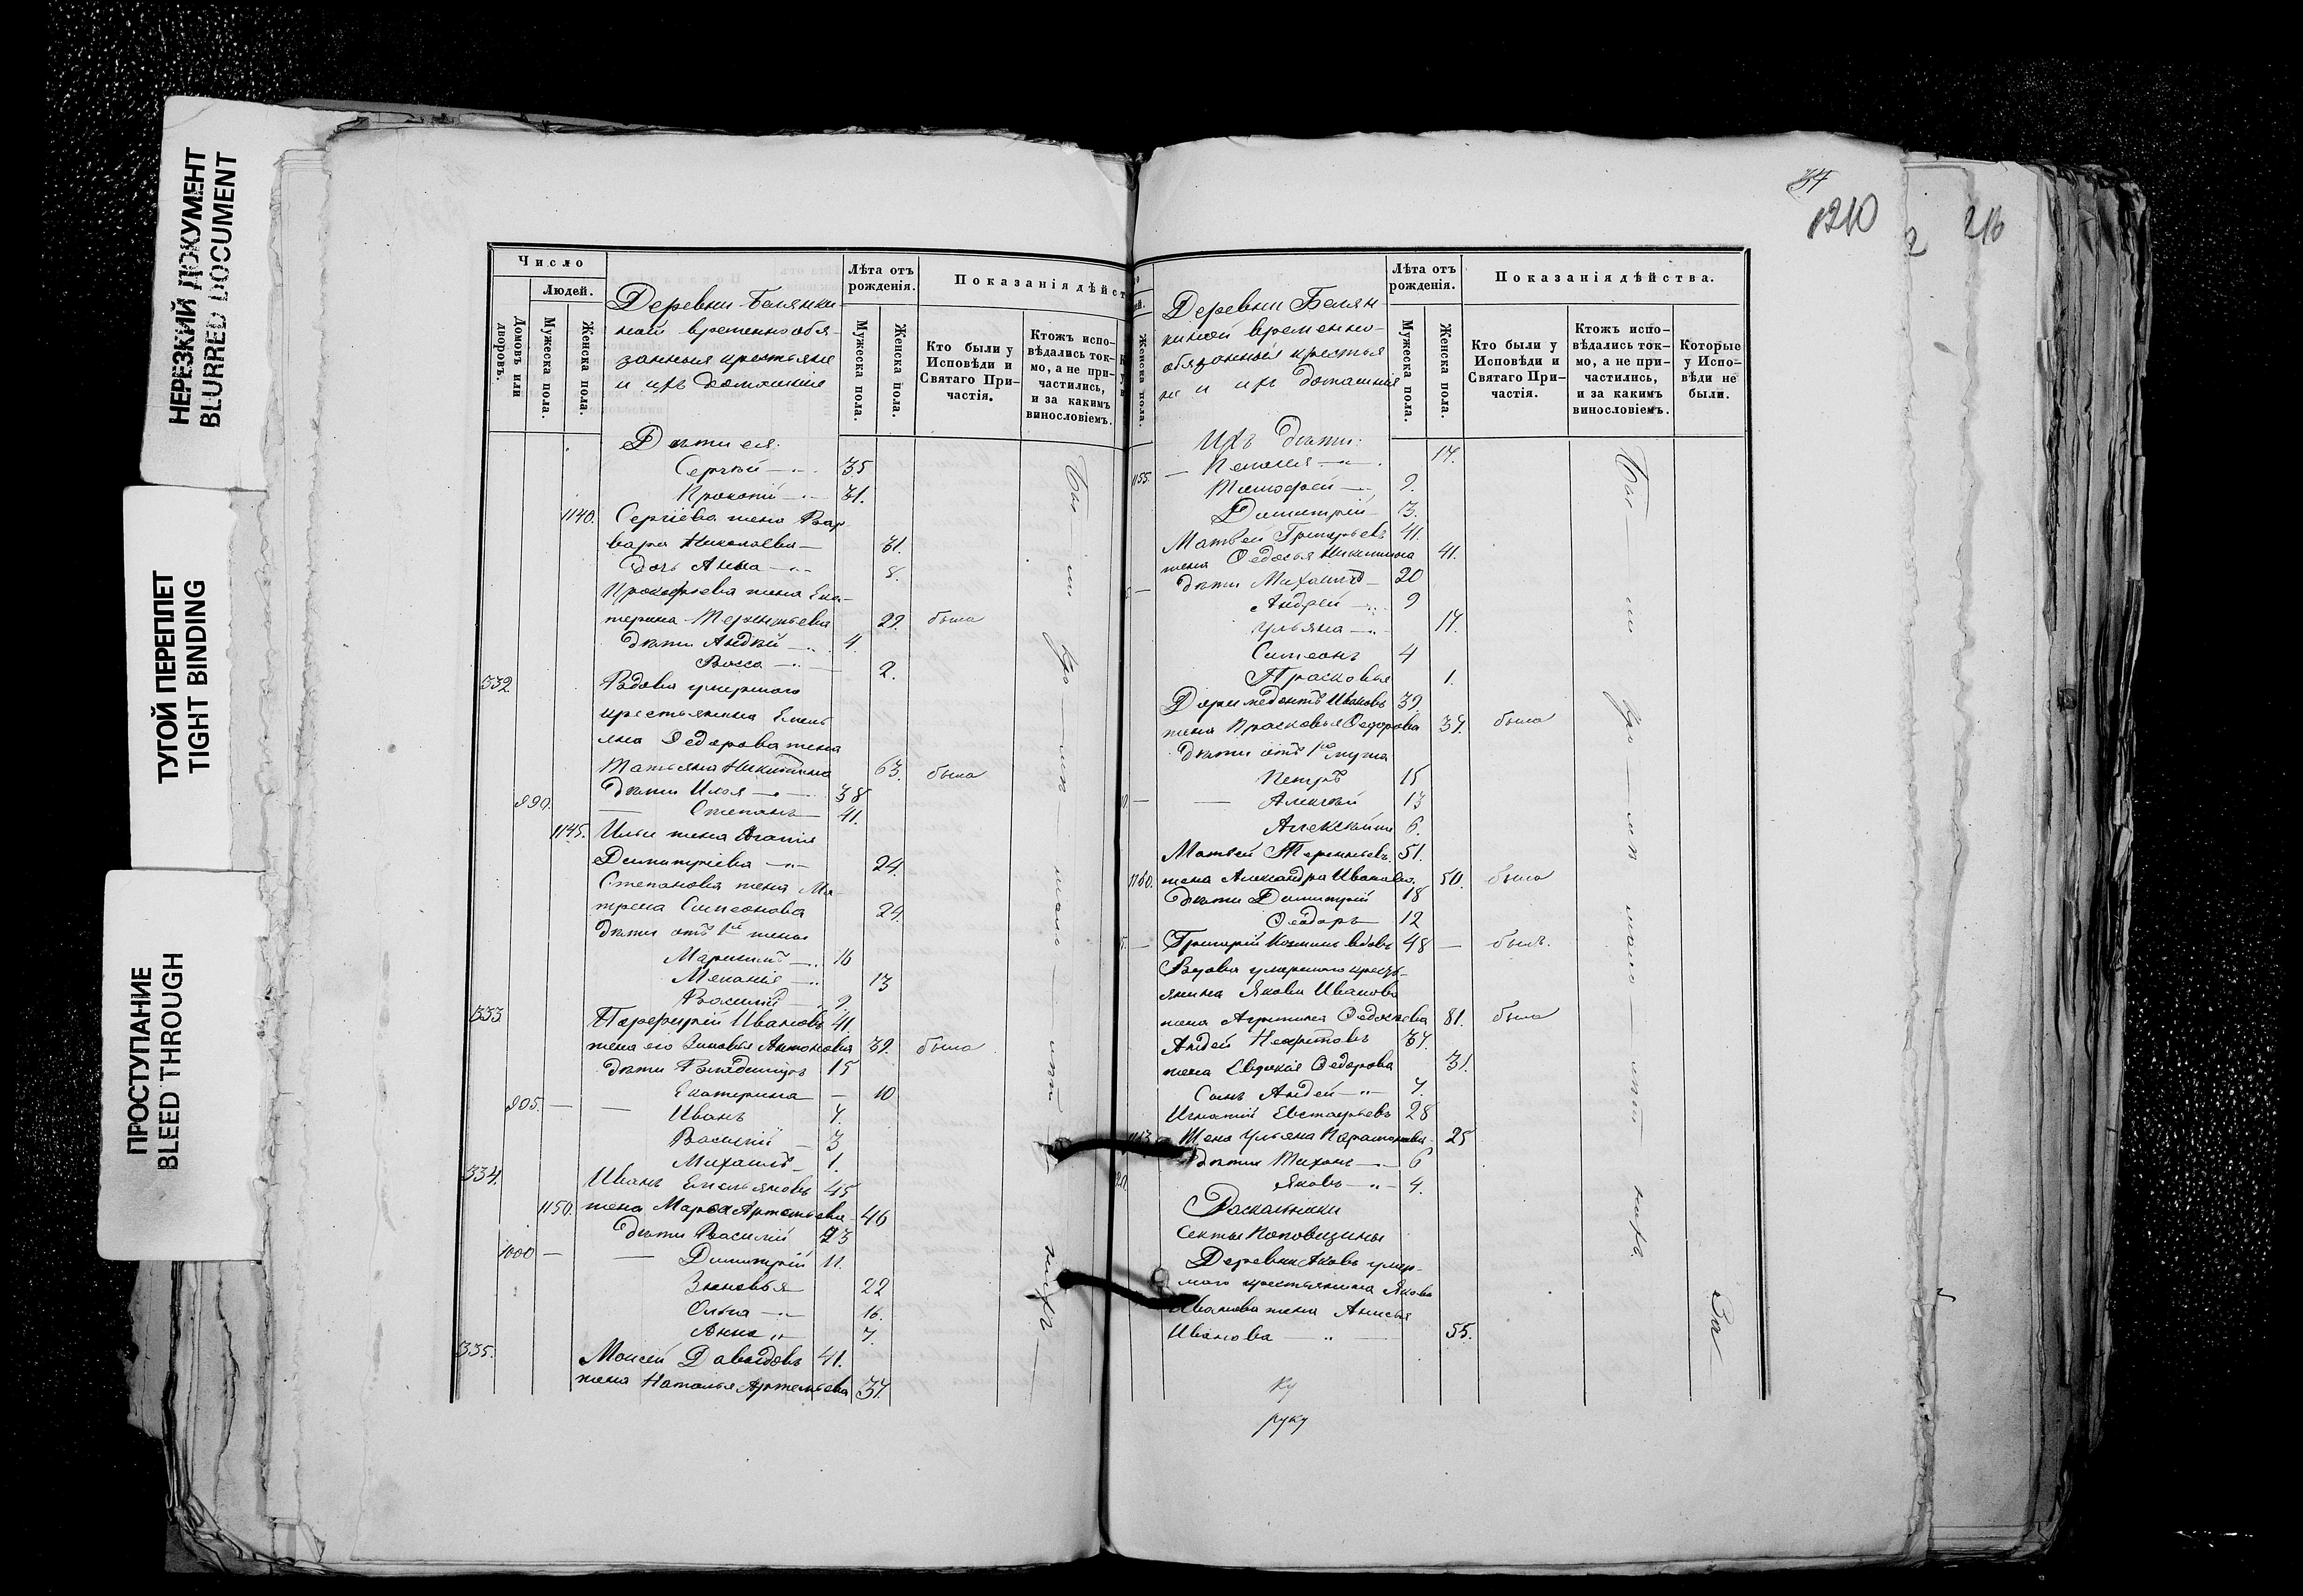 НЕРЕЗКИЙ ДОКУМЕНТ
BLURRED DOCUMENT
ТУГОЙ ПЕРЕПЛЕТ
TIGHT BINDING
ПРОСТУПАНИЕ
BLEED THROUGH
Число
Людей.
Домовъ или дворовъ.
Мужеска пола.
Женска пола.
Деревни Белянки
ной временнообя
занныя крестьяне
и ихъ домашніе
Лѣта отъ рожденія.
Мужеска пола.
Женска пола.
Показанія дѣйст
Кто были у Исповѣди и Святаго При-частія.
Ктожъ испо-вѣдались ток-мо, а не при-частились, и за какимъ винословіемъ.
Дѣти ея:
Сергѣй 35
Прокопій 31.
1140. Сергіева жена Вар
вара Николаевна 31.
Дочь Анна 8.
Прокофьева жена Ека-
терина Терентьева 29. была
Дѣти Андрей 4.
2.
332 Вдова умершаго
крестьянина Емель
яна Федорова жена
Татьяна Никитина 63. была
Дѣти Илья 38
990. Степанъ 41.
1145. Ильи жена Агапія
Димитріева 24.
Степанова жена Ма-
трена Симеонова 24.
Дѣти отъ 1й жены
16
Меланія 13
Василій 9
333 Порфирій Ивановъ 41.
жена его Зиновья Антонова 39. была
дѣти Владиміръ 15
Екатерина 10
995. Иванъ 7.
Василій 3
Михаилъ 1.
334. Иванъ Емельяновъ 45
1150. жена Марья Артемьева 46
дѣти Василій 23
1000 Димитрій 11.
Зиновья 22
Ольга 16.
Анна 7.
335. Моисей Давыдовъ 41.
жена Наталья Артемьева 37.
34
1210
2
216
Женска пола.
Деревни Белян
киной временно-
обязанныя крестья
не и ихъ домашніе
Лѣта отъ рожденія.
Мужеска пола.
Женска пола.
Показанія дѣйства.
Кто были у Исповѣди и Святаго При-частія.
Ктожъ испо-вѣдались ток-мо, а не при-частились, и за какимъ винословіемъ.
Которые у Испо-вѣди не были.
Ихъ дѣти:
1155. Пелагія 14.
Тимофей 9.
Димитрій 3.
Матвей Григорьевъ 41.
жена Федосья Никитина 41.
дѣти Михаилъ 20
Андрей 9
Ульяна 17.
Симеонъ 4
Прасковья 1.
Доримедонтъ Ивановъ 39.
жена Прасковья Федорова 37. была
дѣти отъ 1го мужа
Петръ 15
Алексѣй 13
6.
Матвей Терентьевъ 51.
1160. жена Александра Иванова 50. была
Дѣти Димитрій 18
Феодоръ 12
Григорій Козминъ вдовъ 48 былъ.
Вдова умершаго кресть-
янина Якова Иванова
жена Агрипина Федосеева 81. была
37.
жена Евдокія Федорова 31.
Сынъ Андрей 7.
Игнатій Евстафьевъ 28
Жена Ульяна 25
дѣти Тихонъ 6
Яковъ 4.
Раскольники
Секты Поповщины
умер-
шаго крестьянина Якова
Иванова жена Анисья
Иванова 55.
За
руку